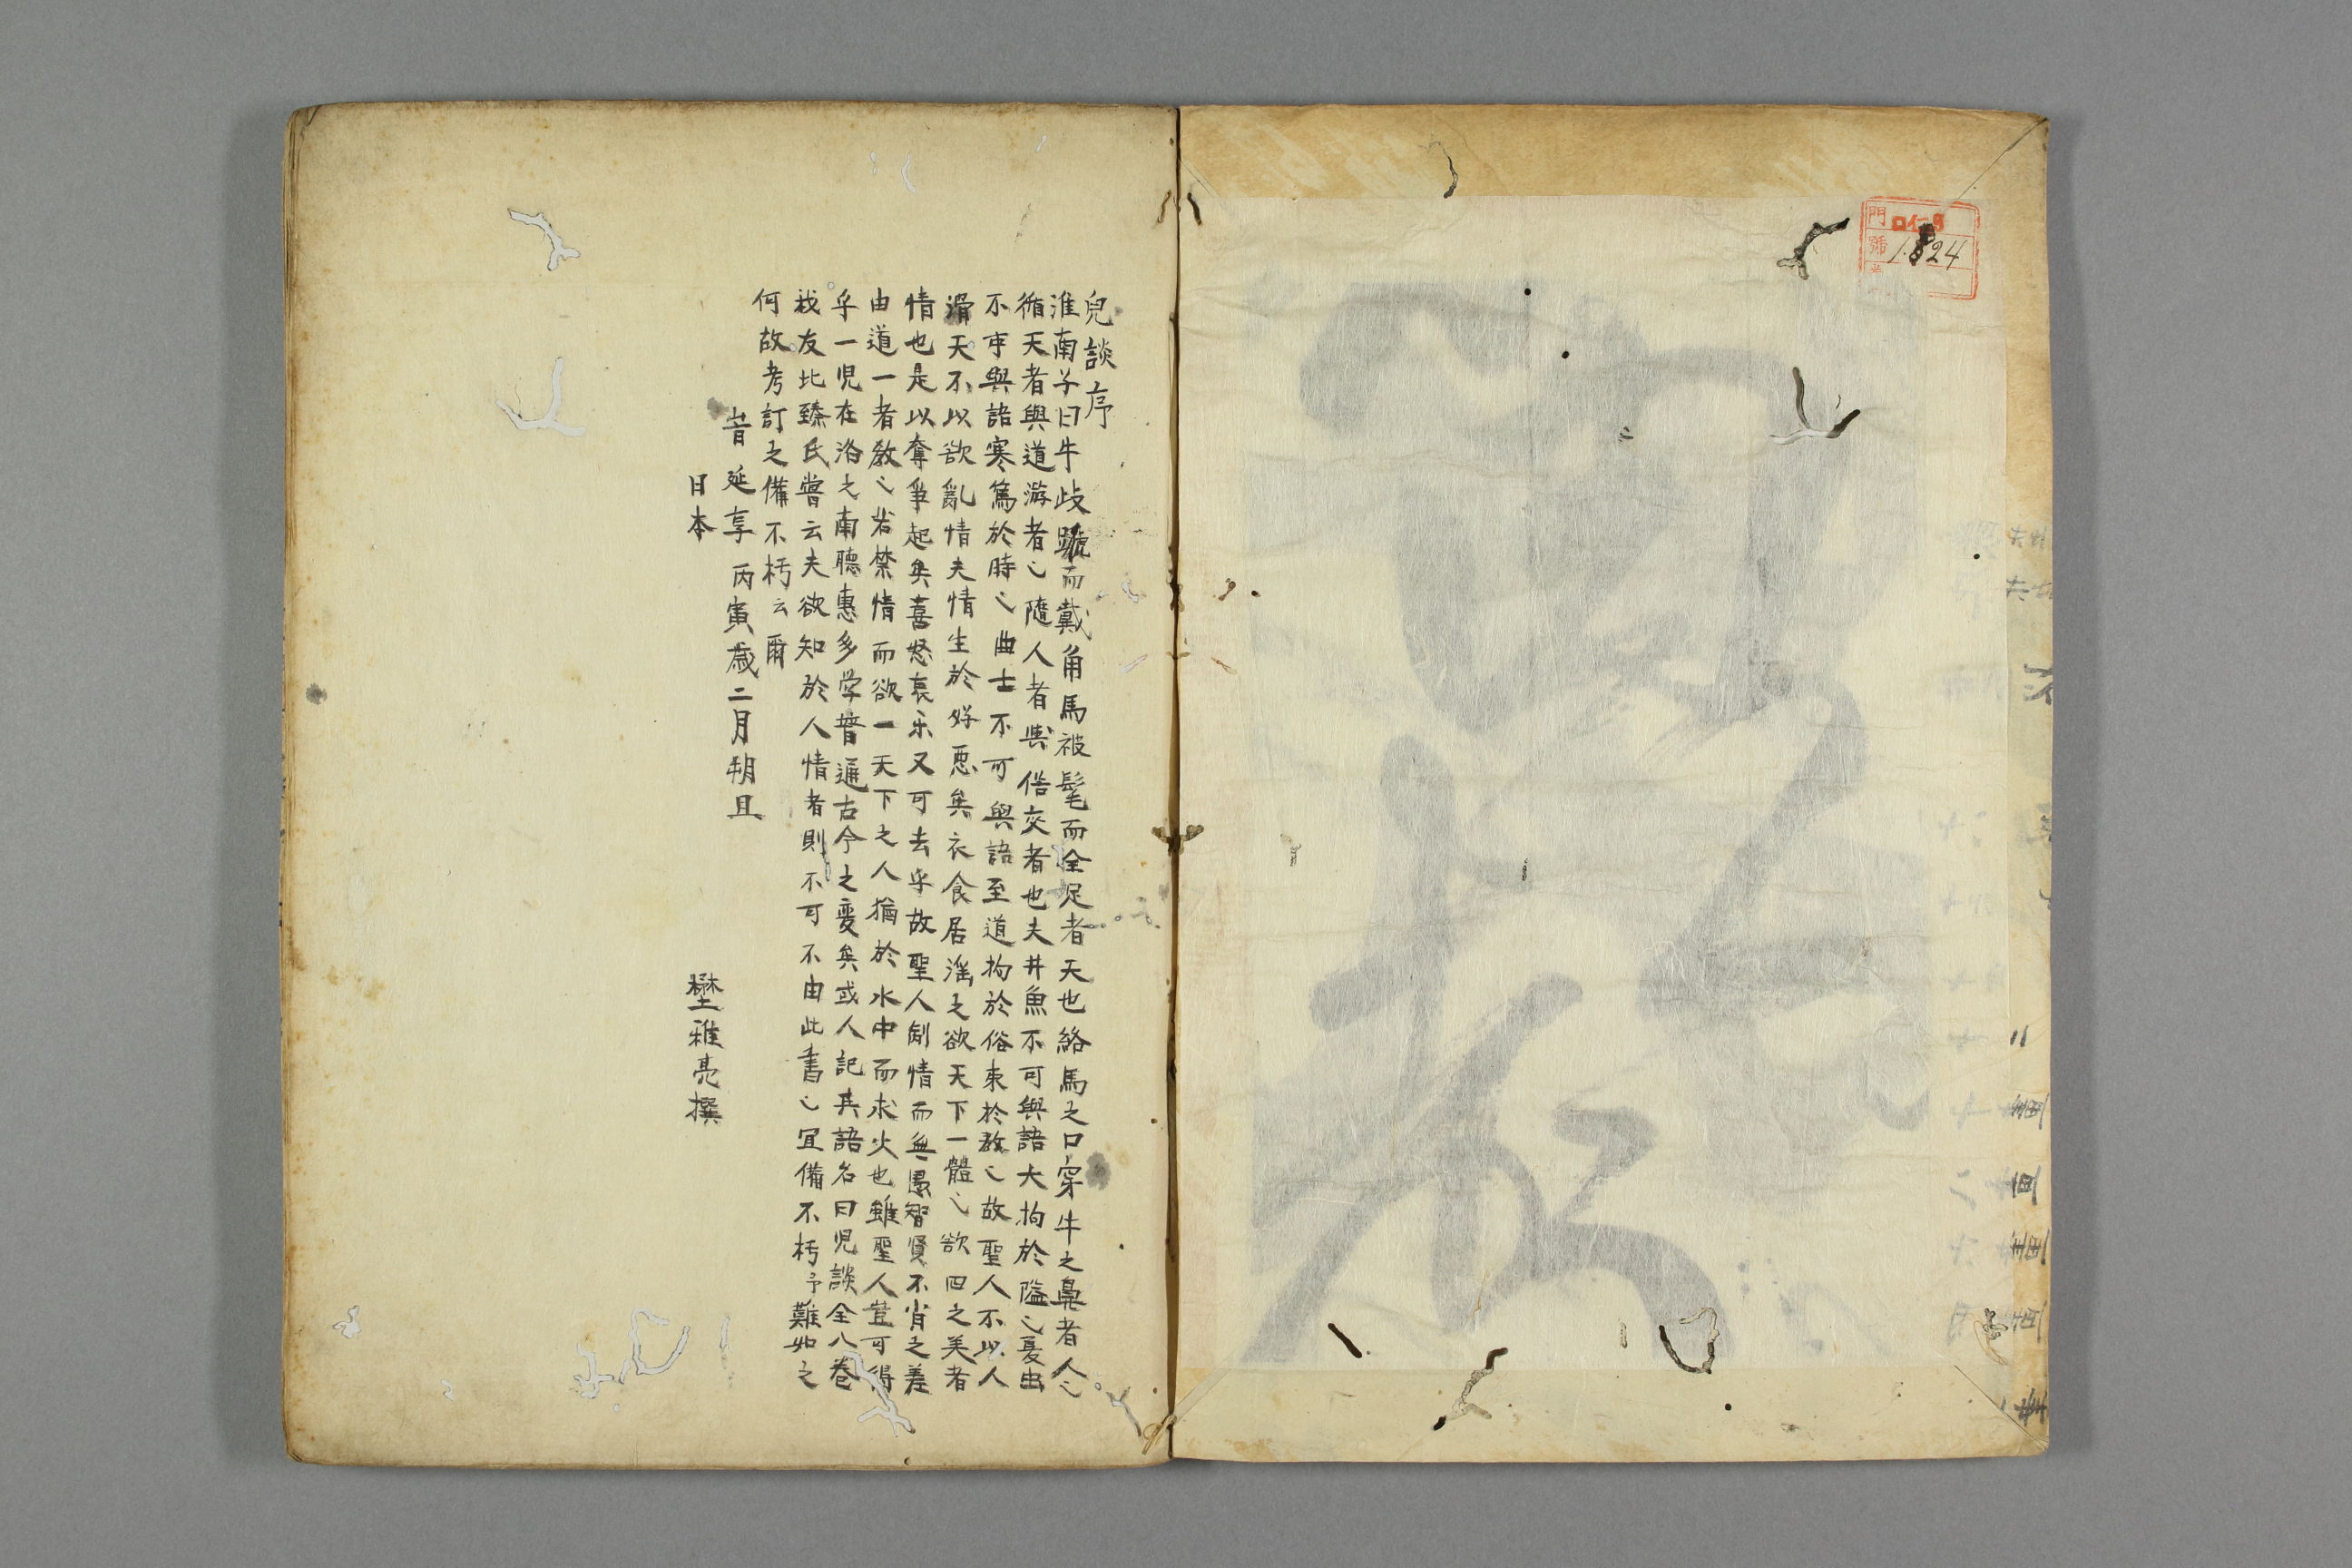 門
號 1824
兒談序
淮南子曰牛歧蹏而戴角馬被髦而全足者天也絡馬之口穿牛之鼻者人〻
循天者與道游者〻隨人者與俗交者也夫井魚不可與語大拘於隘〻夏虫
不可與語寒篤於時〻曲士不可與語至道拘於俗束於教〻故聖人不以人
滑天不以欲亂情夫情生於好惡矣衣食居淫之欲天下一體〻欲四之美者
情也是以奪爭起矣喜怒哀乐又可去乎故聖人制情而無愚智賢不肖之差
由道一者教〻若禁情而欲一天下之人猶於水中而求火也雖聖人豈可得
乎一児在洛之南聴惠多学普通古今之変矣或人記其語名曰児談全八巻
我友比臻氏嘗云夫欲知於人情者則不可不由此書〻宜備不朽予難如之
何故考訂之備不朽云爾
旹延享丙寅歳二月朔旦
日本 雅亮撰